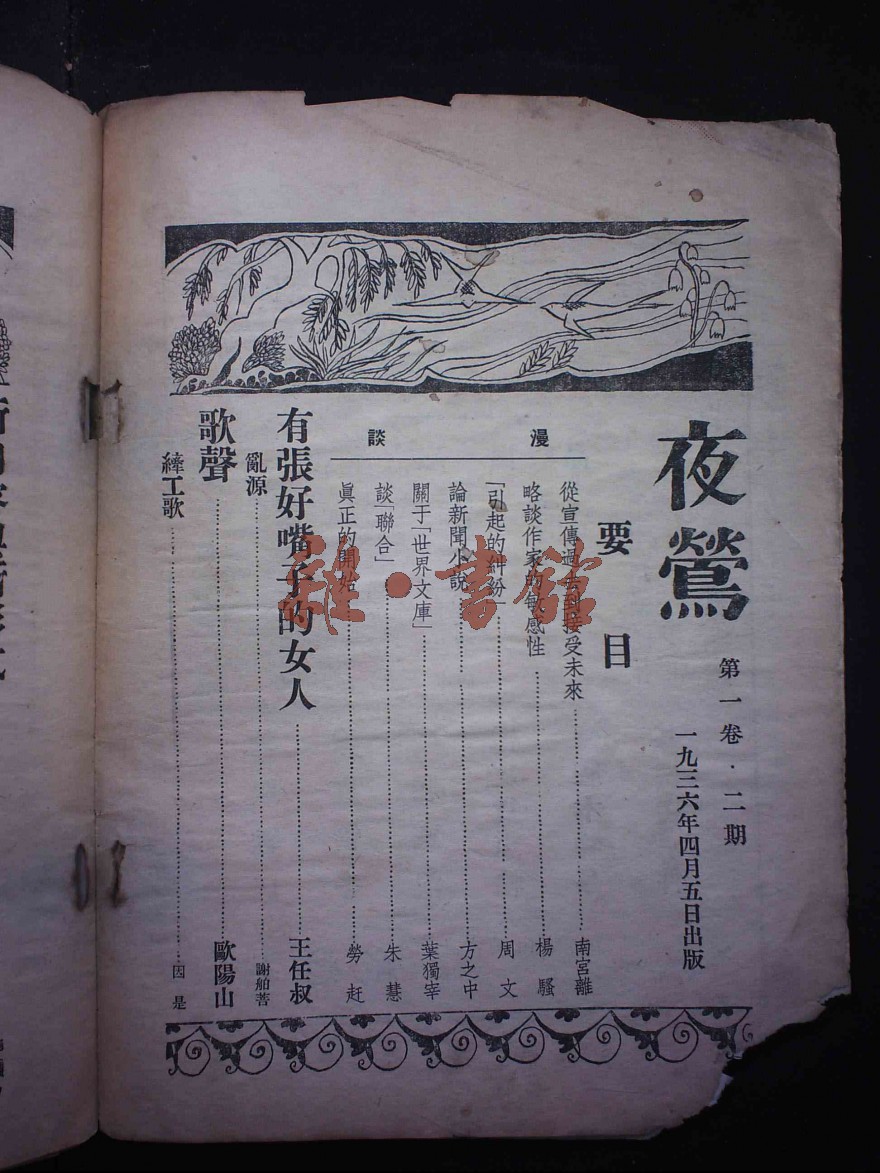 夜鶯
第一卷·二期
一九三六年四月五日出版
要目
漫談
從宣傳過去到接受未來 南宮離
略談作家的每感性 楊騷
「引起的糾紛」 周文
論新聞小說 方之中
關于「世界文庫」 葉獨宰
談「聯合」 朱慧
眞正的開始 勞赶
有張好嘴子的女人 王任叔
亂源
歌聲 歐陽山
縴工歌 因是
雜·書館